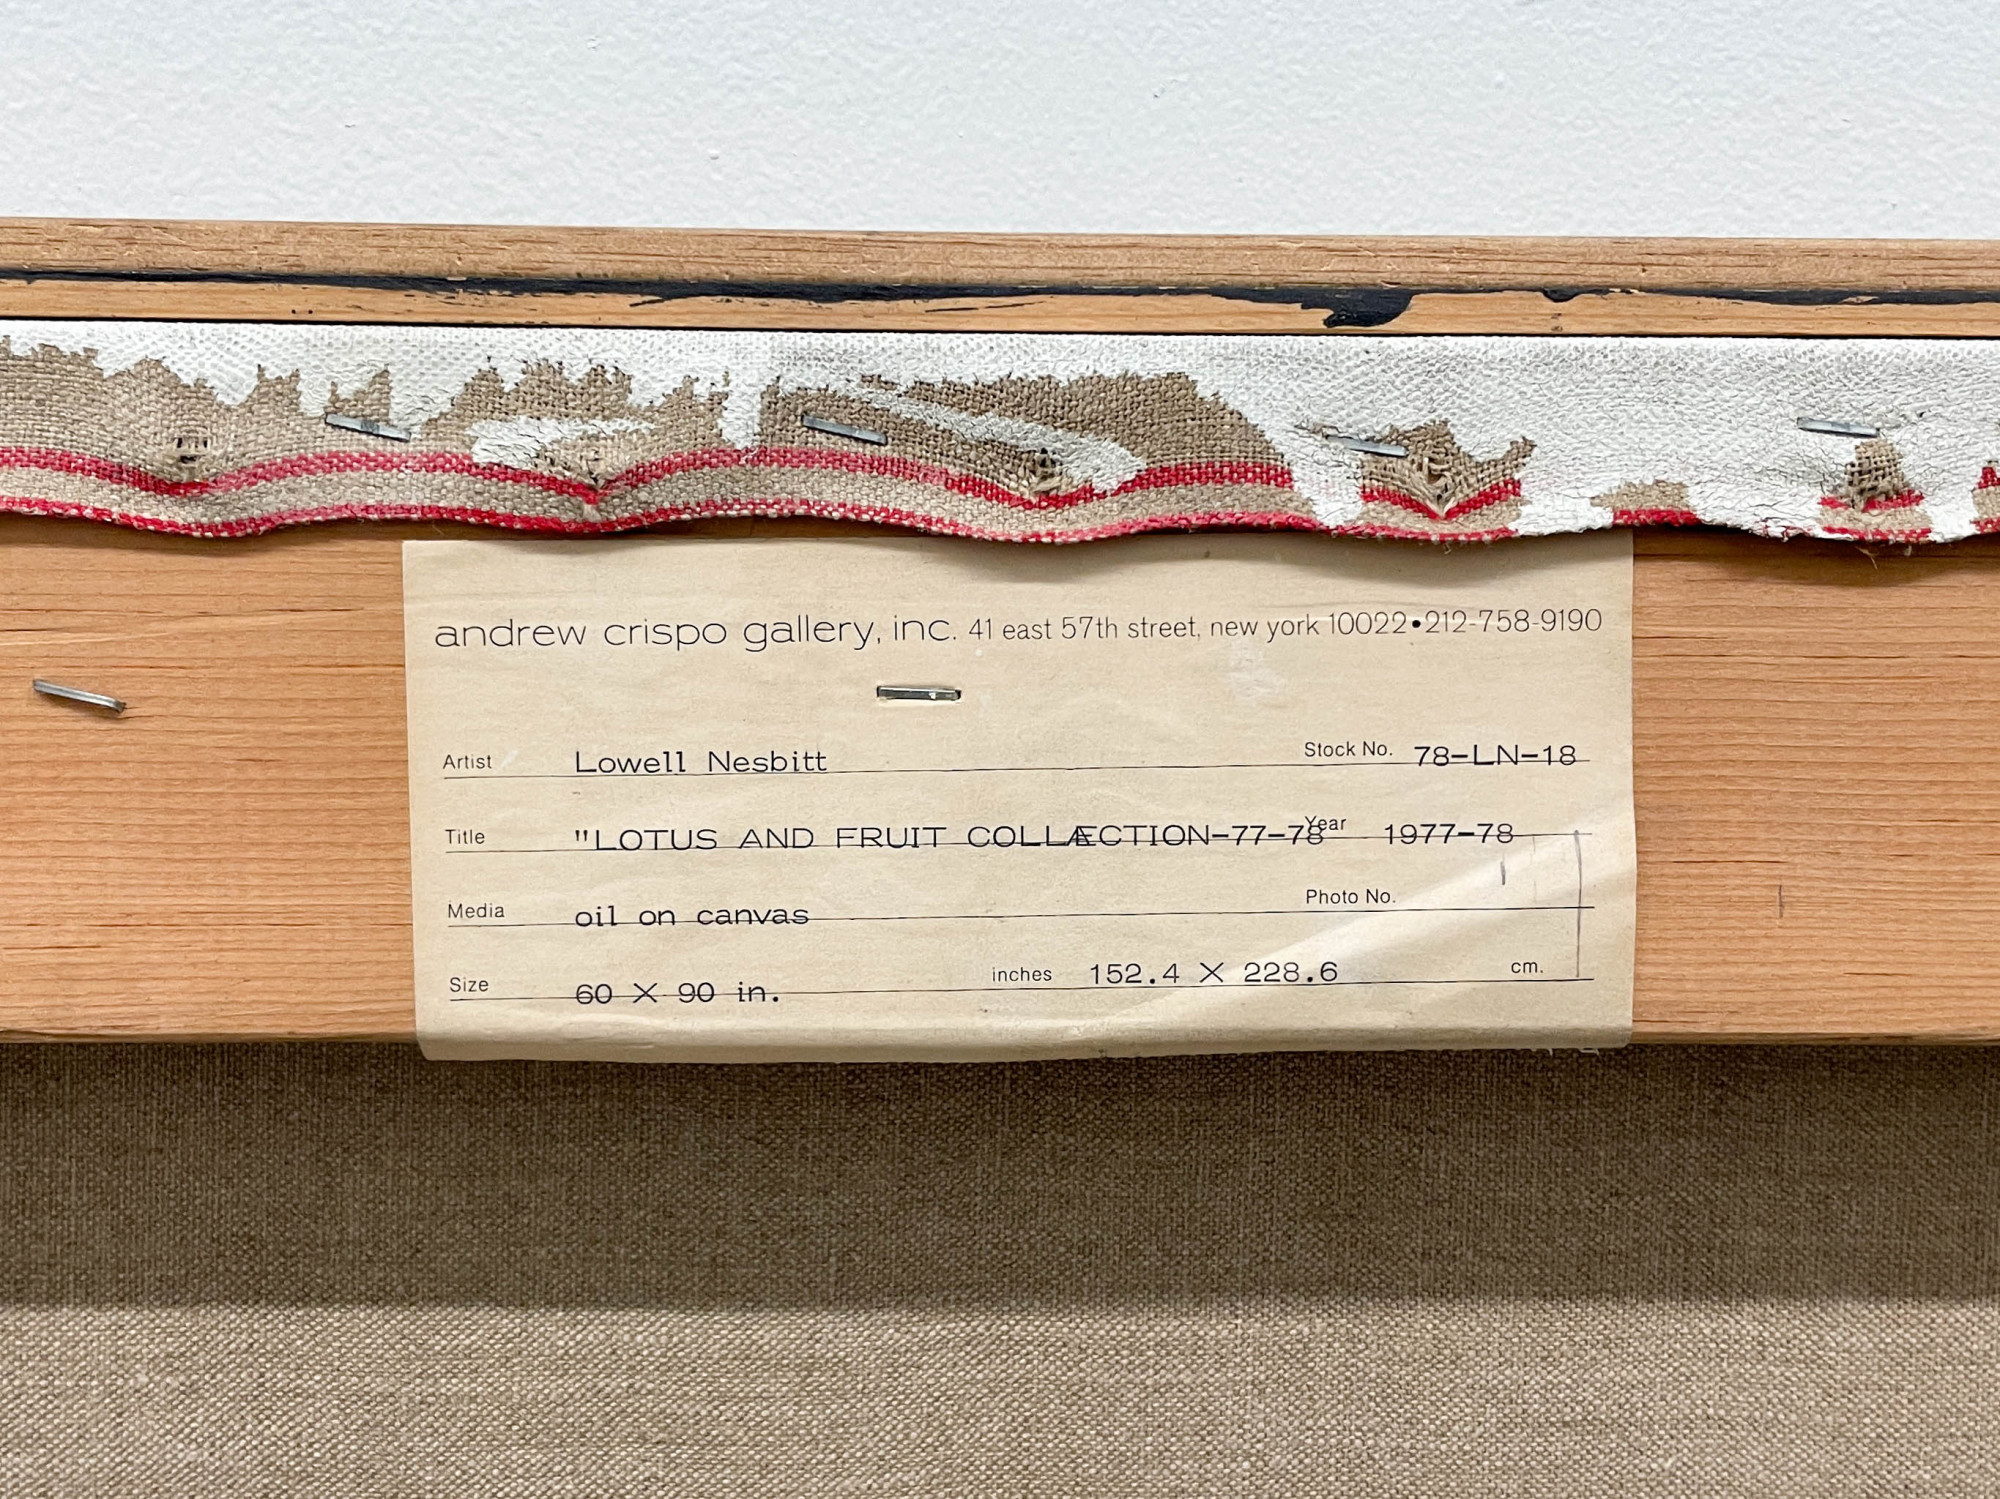 andrew crispo gallery, inc. 41 east 57th street, new york 10022•212-758-9190
Artist Lowell Nesbitt Stock No. 78-LN-18
Title "LOTUS AND FRUIT COLLECTION-77-78 Year 1977-78
Media oil on canvas Photo No.
Size 60 X 90 in. inches 152.4 X 228.6 cm.